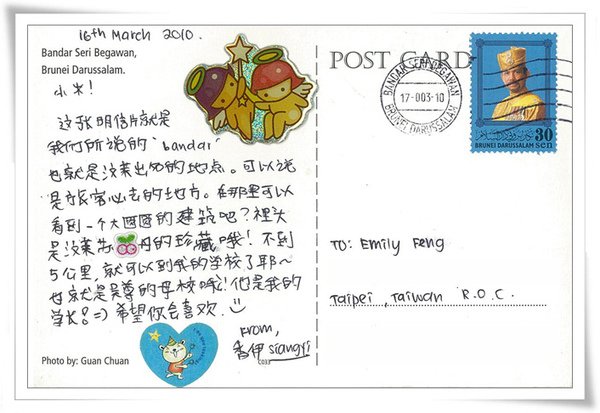 16th March 2010.
Bandar Seri Begawan,
Brunei Darussalam.
小米!
这张明信片就是
我们所说的‘bandar’
也就是汶莱出名的地点。可以说
是旅客必去的地方。在那里可以
看到一个大圆圆的建筑吧?裡头
是汶莱 的珍藏哦! 不到
5公里,就可以到我的学校了耶~
也就是吴尊的母校哦!他是我的
学长!=) 希望你会喜欢.
From,
香伊 siangyi
Photo by: Guan Chuan
C033
POST CARD
BANDAR SERI BEGAWAN
17-003-10
BRUNEI DARUSSALAM
30
BRUNEI DARUSSALAM sen
TO: Emily Feng
Taipei, Taiwan R.O.C.